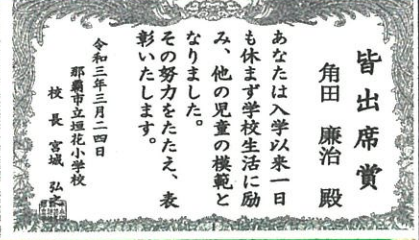 皆出席賞
角田 廉治 殿
あなたは入学以来一日
も休まず学校生活に励
み、他の児童の模範と
なりました。
その努力をたたえ、表
彰いたします。
令和三年三月二四日
那覇市立垣花小学校
校長 宮城 弘